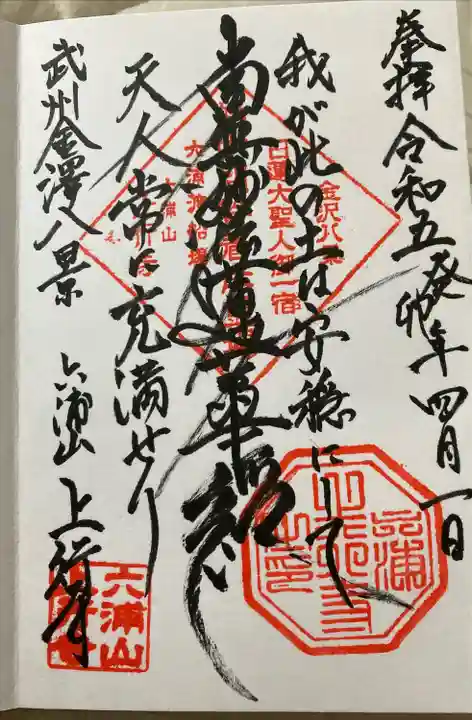 奉拝 令和五癸卯年四月一日
我が此の土は安穏にして
南無妙法蓮華経
天人常に充満せり
武州金澤八景 六浦山 上行寺
金沢八景
日蓮大聖人御一宿
六浦湊船場
六浦山
六浦山
上行寺